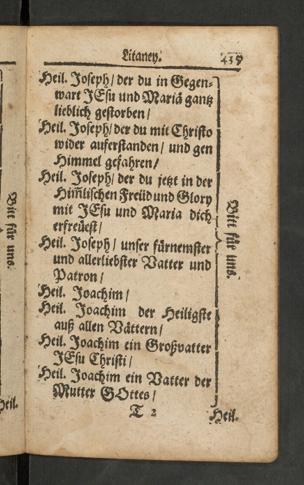 Litaney. 435
Heil. Joseph/ der du in Gegen-
wart JEsu und Mariā gantz
lieblich gestorben/
Heil. Joseph/ der du mit Christo
wider auferstanden/ und gen
Himmel gefahren/
Heil. Joseph/ der du jetzt in der
Him̃lischen Freüd und Glory
mit JEsu und Maria dich
erfreüest/
Heil. Joseph/ unser fürnemster
und allerliebster Vatter und
Patron/
Heil. Joachim/
Heil. Joachim der Heiligste
auß allen Vättern/
Heil. Joachim ein Großvatter
JEsu Christi/
Heil. Joachim ein Vatter der
Mutter GOttes/
Bitt für uns.
T 2 Heil.
Bitt für uns.
Heil.